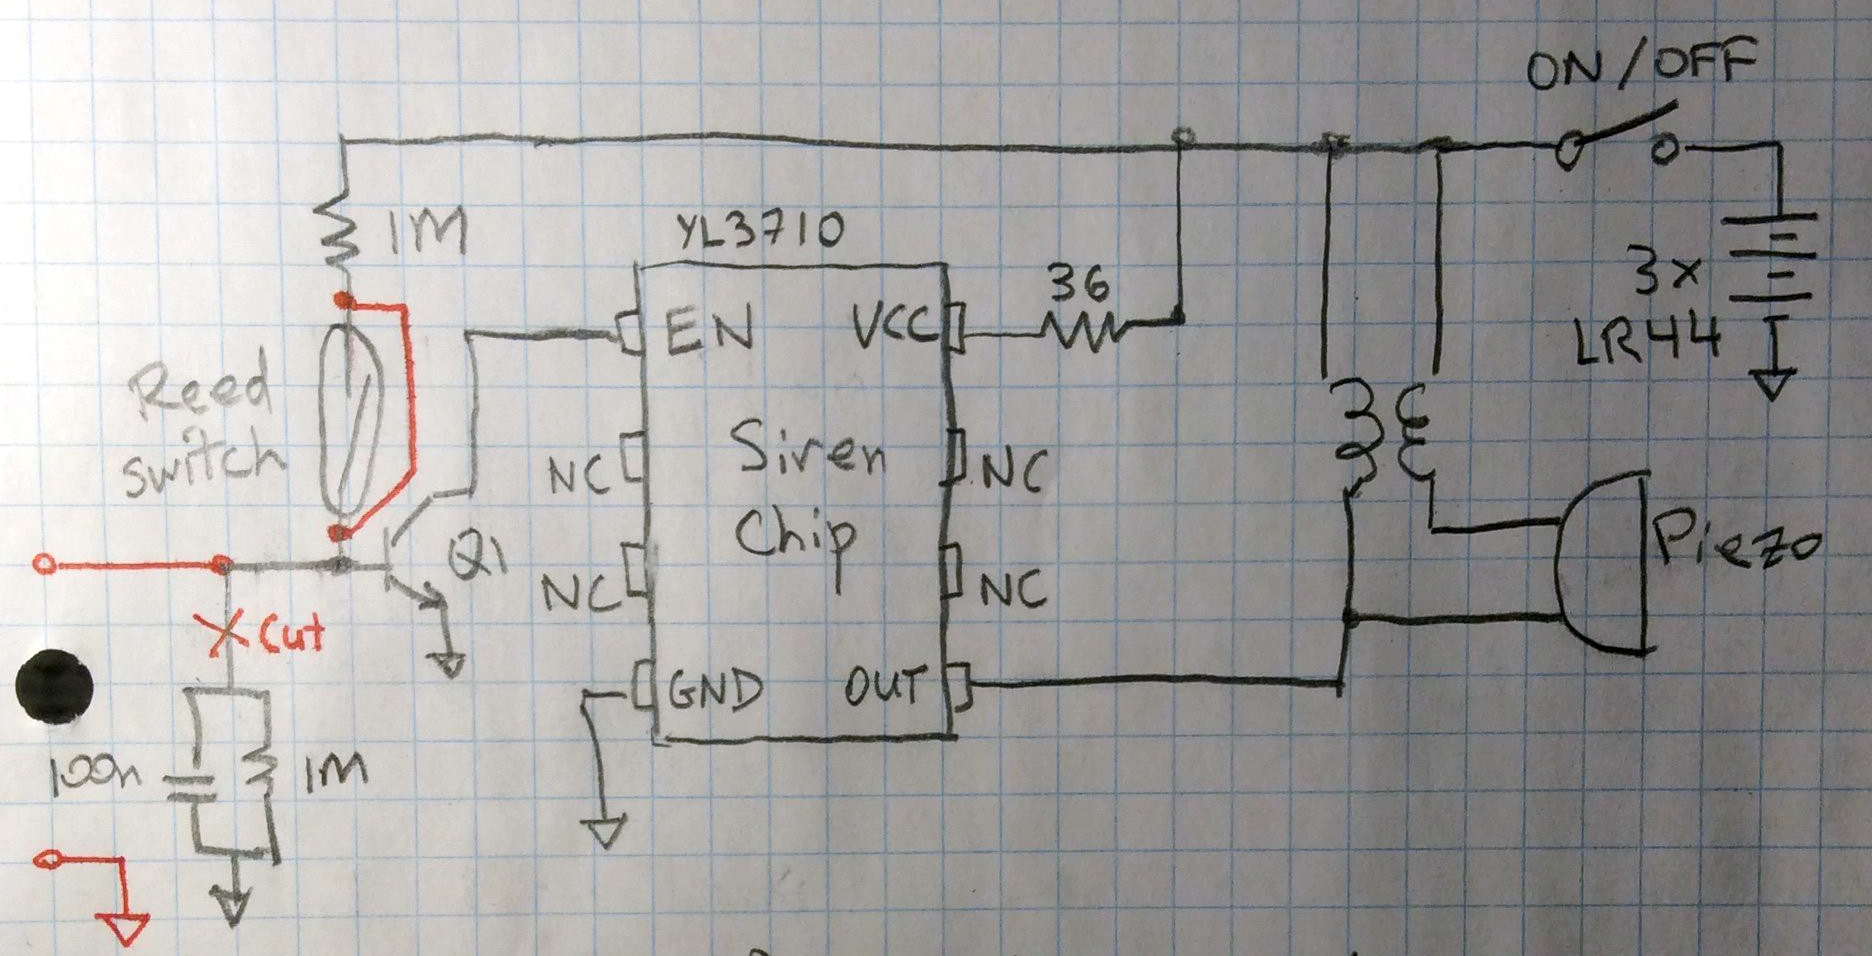 ON/OFF
1M
YL3710
36
3x
LR44
EN
VCC
Reed
switch
NC
Siren
NC
Chip
Q1
Piezo
NC
NC
Cut
GND
OUT
100n
1M